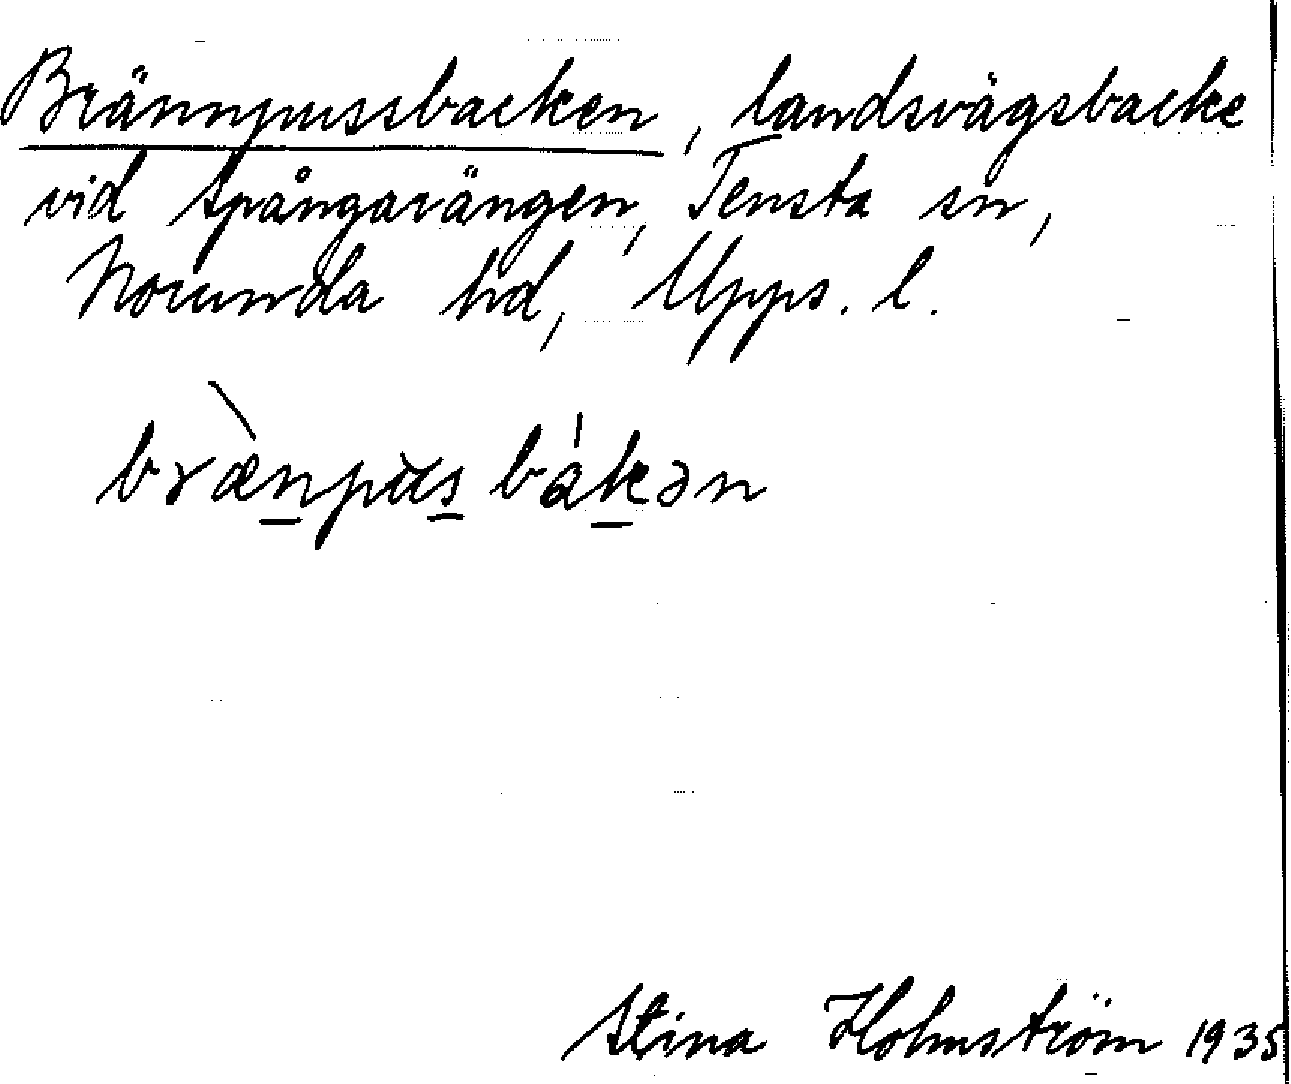 Brännpussbacken, landsvägsbacke
vid Spångavängen, Tensta sn,
Norunda hd, Upps. l.
bræ̀npùs bákən
Stina Holmström 1935